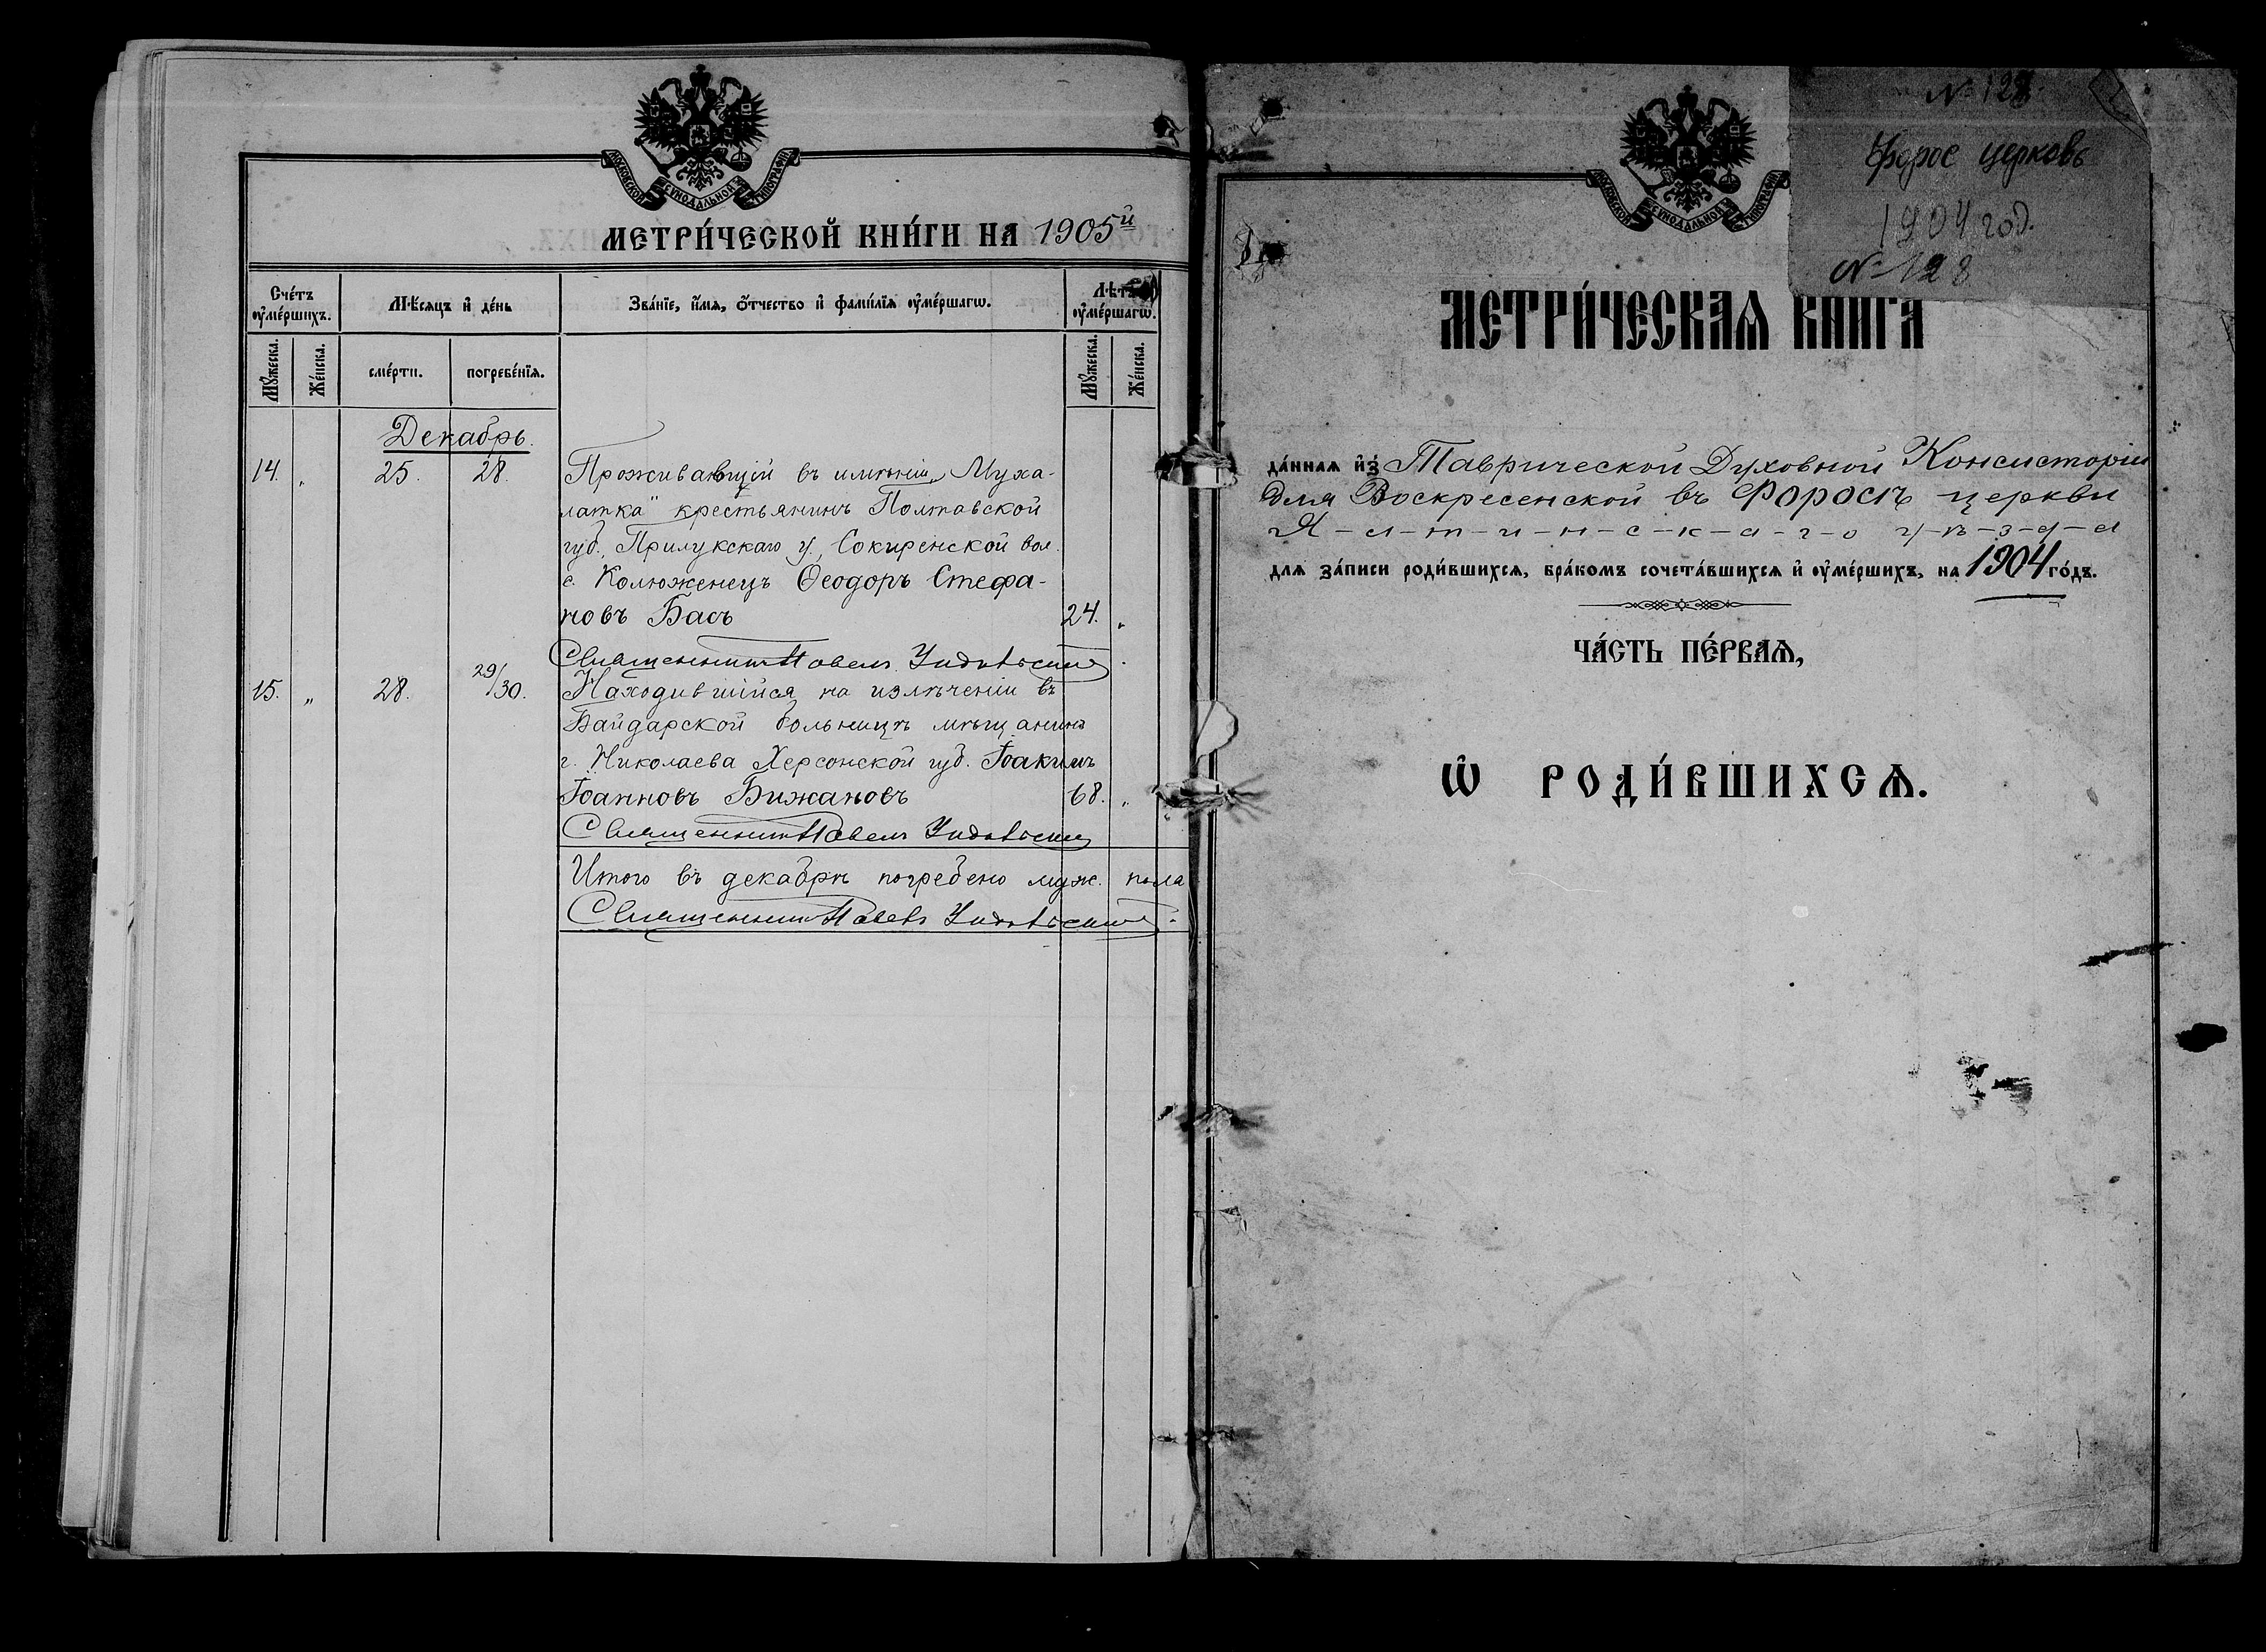 МОСКОВСКОЙ СѴНОДАЛЬНОЙ ТИПОГРАФІИ
МЕТРИ́ЧЕСКОЙ КНИ́ГИ НА 1905й
Сче́тъ ᲂу҆ме́ршихъ.
Мѣ́сяцъ и҆ де́нь
Зва́нїе, и҆́мѧ, ѻ҆́тчество и҆ фами́лїѧ ᲂу҆ме́ршагѡ.
Лѣт ᲂу҆ме́ршагѡ.
Мꙋ́жеска.
Же́нска.
сме́рти.
погребе́нїѧ.
Мꙋ́жеска.
Же́нска.
Декабрь.
14. „ 25. 28. Проживающій въ имѣніи „Муха-
латка" крестьянинъ Полтавской
губ., Прилукскаго у., Сокиренской вол.
с. Колюженецъ Ѳеодоръ Стефа-
новъ Басъ 24. „
Священникъ Павелъ
15. „ 28. 29/30. Находившійся на излѣченіи въ
Байдарской больницѣ мѣщанинъ
г. Николаева Херсонской губ. Іоакимъ
Іоанновъ Бижановъ 68. „
Священникъ Павелъ
Итого въ декабрѣ погребено муж. пола
Священникъ Павелъ
№ 128.
Форос церковь
1904 год.
№ 128
МОСКОВСКОЙ СѴНОДАЛЬНОЙ ТИПОГРАФІИ
МЕТРИ́ЧЕСКАѦ КНИГА
да́ннаѧ и҆з̾ Таврической Духовной Консисторіи
для Воскресенской въ Форосѣ церкви
Я-л-т-и-н-с-к-а-г-о у-ѣ-з-д-а
для за́писи роди́вшихсѧ, бра́комъ сочета́вшихсѧ и҆ ᲂу҆ме́ршихъ, на 1904 го́дъ.
ЧА́СТЬ ПЕ́РВАѦ,
Ѽ РОДИ́ВШИХСѦ.